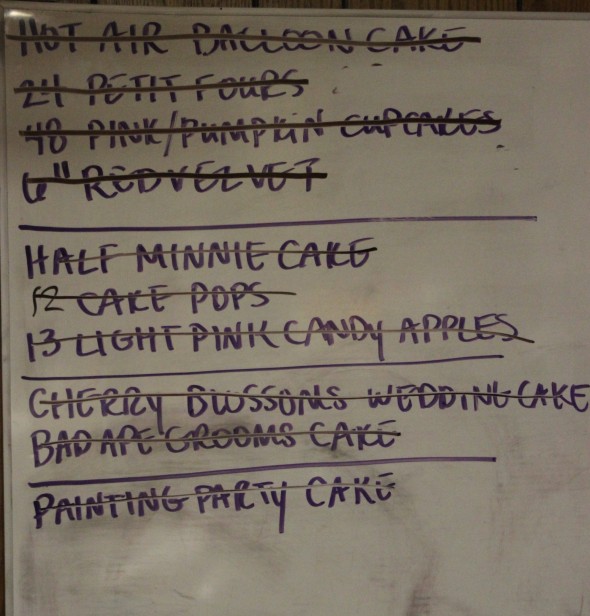 HOT AIR BALLOON CAKE
24 PETIT FOURS
48 PINK/PUMPKIN CUPCAKES
6" RED VELVET
HALF MINNIE CAKE
12 CAKE POPS
13 LIGHT PINK CANDY APPLES
CHERRY BLOSSOMS WEDDING CAKE
BAD APE GROOMS CAKE
PAINTING PARTY CAKE